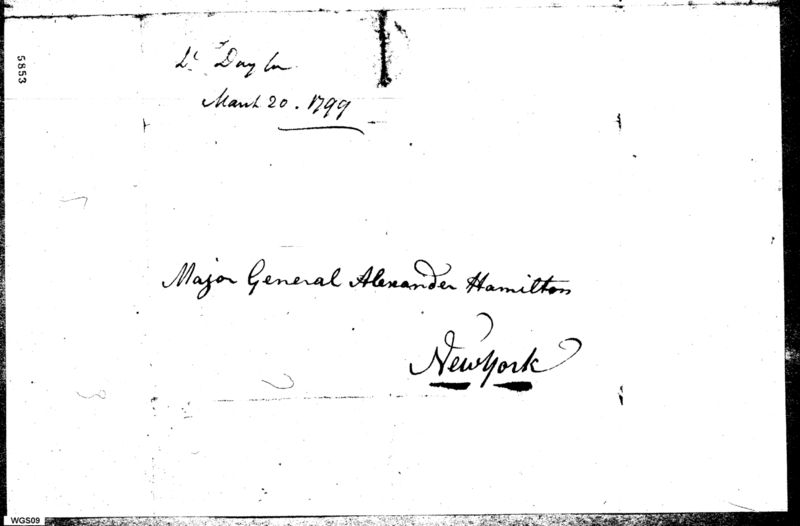 5853
Lt Dayton
March 20. 1799
Major General Alexander Hamilton
New York
WGS09